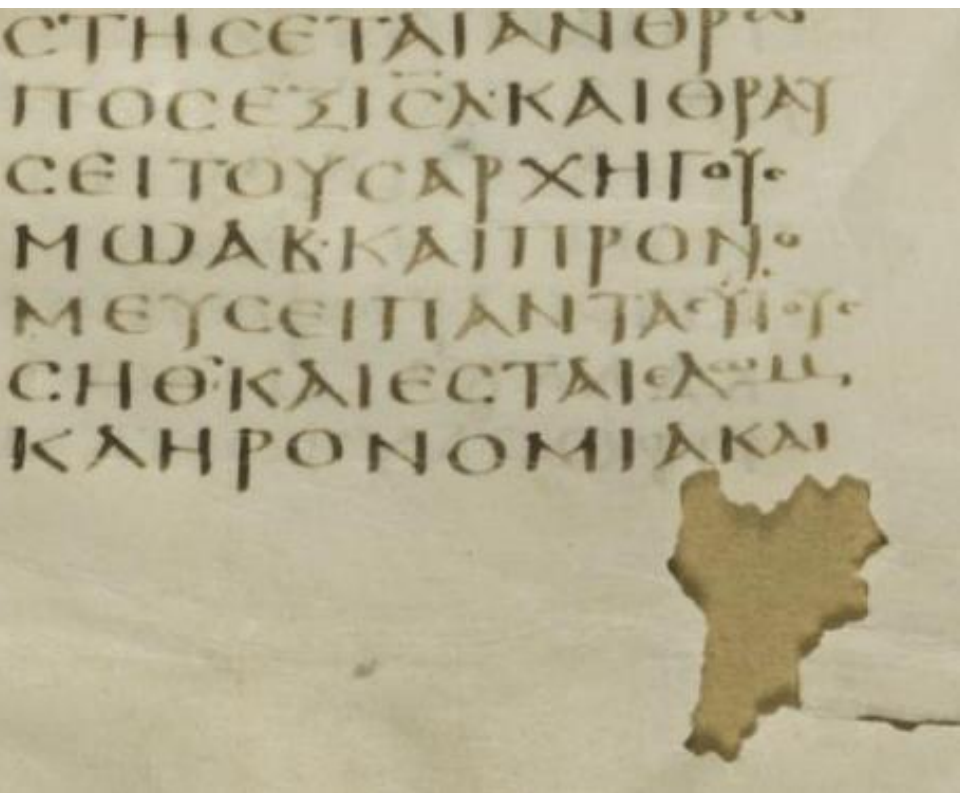 ϹΤΗϹΕΤΑΙΑΝΘΡΩ
ΠΟϹΕΞΙϹ̅Λ̅·ΚΑΙΘΡΑΥ
ϹΕΙΤΟΥϹΑΡΧΗΓΟΥϹ
ΜΩΑΒ·ΚΑΙΠΡΟΝΟ
ΜΕΥϹΕΙΠΑΝΤΑϹΫΪΟΥϹ
ϹΗΘ·ΚΑΙΕϹΤΑΙΕΔΩΜ
ΚΛΗΡΟΝΟΜΙΑΚΑΙ